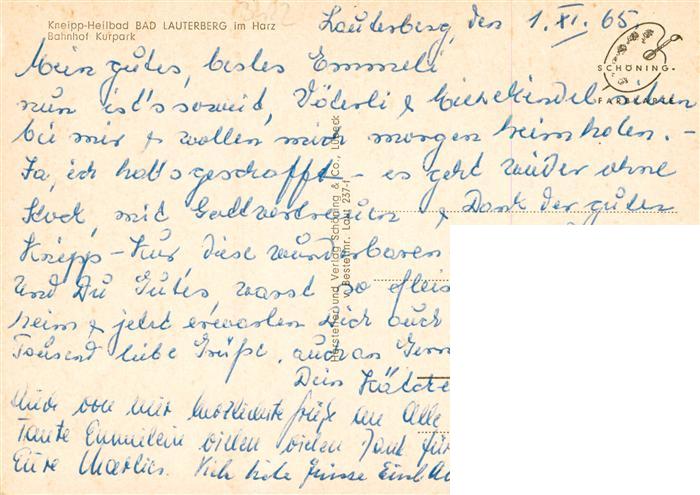 Kneipp-Heilbad BAD LAUTERBERG im Harz
Bahnhof Kurpark
Lauterberg, den 1. XI. 65.
SCHÖNING-
Mein gutes, bestes Emmeli
nun ist's soweit, Väderli &
bei mir & wollen mich morgen heim holen. -
Ja, ich hab's geschafft - es geht wieder ohne
Stock, mit Gottvertrauen & Dank der guten
Kneipp-Kur, diese wunderbaren
Und Du Gutes, warst so fleis
heim & jetzt erwarten Dich auch
Tausend liebe Grüße, auch an
Dein Kätche
Auch von mir herzlichste Grüße an Alle
Tante Emmilein vielen vielen Dank für
Eure Marlies. Viele Grüsse
Hersteller und Verlag Schöning & Co., Lübeck
Bestellnr. Laut 237-1